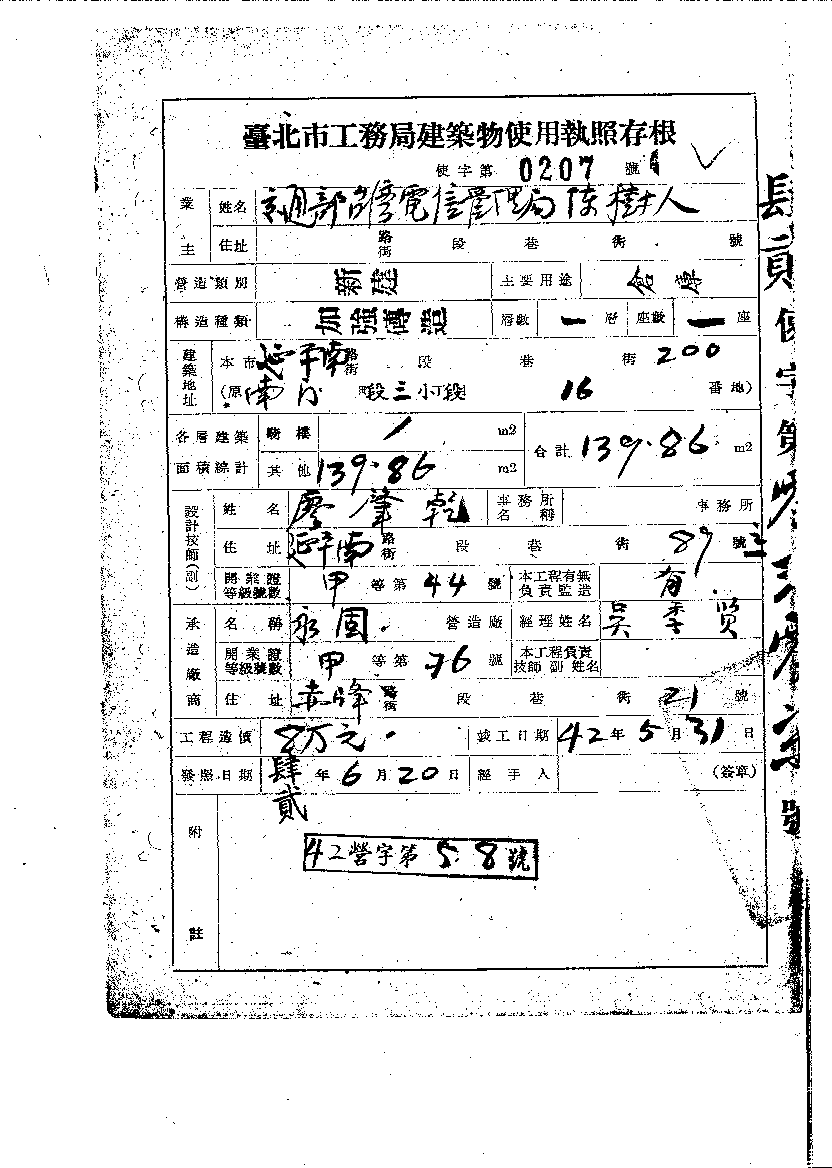 臺北市工務局建築物使用執照存根
使字第 0207 號
業主 姓名 交通部台灣電信管理局 陳樹人
住址 路街 段 巷 街 號
營造類別 新建 主要用途 倉庫
構造種類 加強磚造 層數 一 層 座數 一 座
建築地址 本市 延平南 路街 段 巷 街 200
(原 南 町段 三 小丁段 16 番地)
各層建築面積綜計 騎樓 / m2 合計 139.86 m2
其他 139.86 m2
設計技師(副) 姓名 廖肇乾 事務所名稱 事務所
住址 延平南 路街 段 巷 街 89 號
開業證等級號數 甲 等第 44 號 本工程有無負責監造 有
承造廠商 名稱 永固 營造廠 經理姓名 吳季賢
開業證等級號數 甲 等第 76 號 本工程負責技師 副 姓名
住址 赤峰 路街 段 巷 街 21 號
工程造價 8万元 竣工日期 42年 5月 31日
發照日期 肆貳 年 6月 20日 經手人 (簽章)
附註
42營字第 5 8 號
肆貳使字第 號